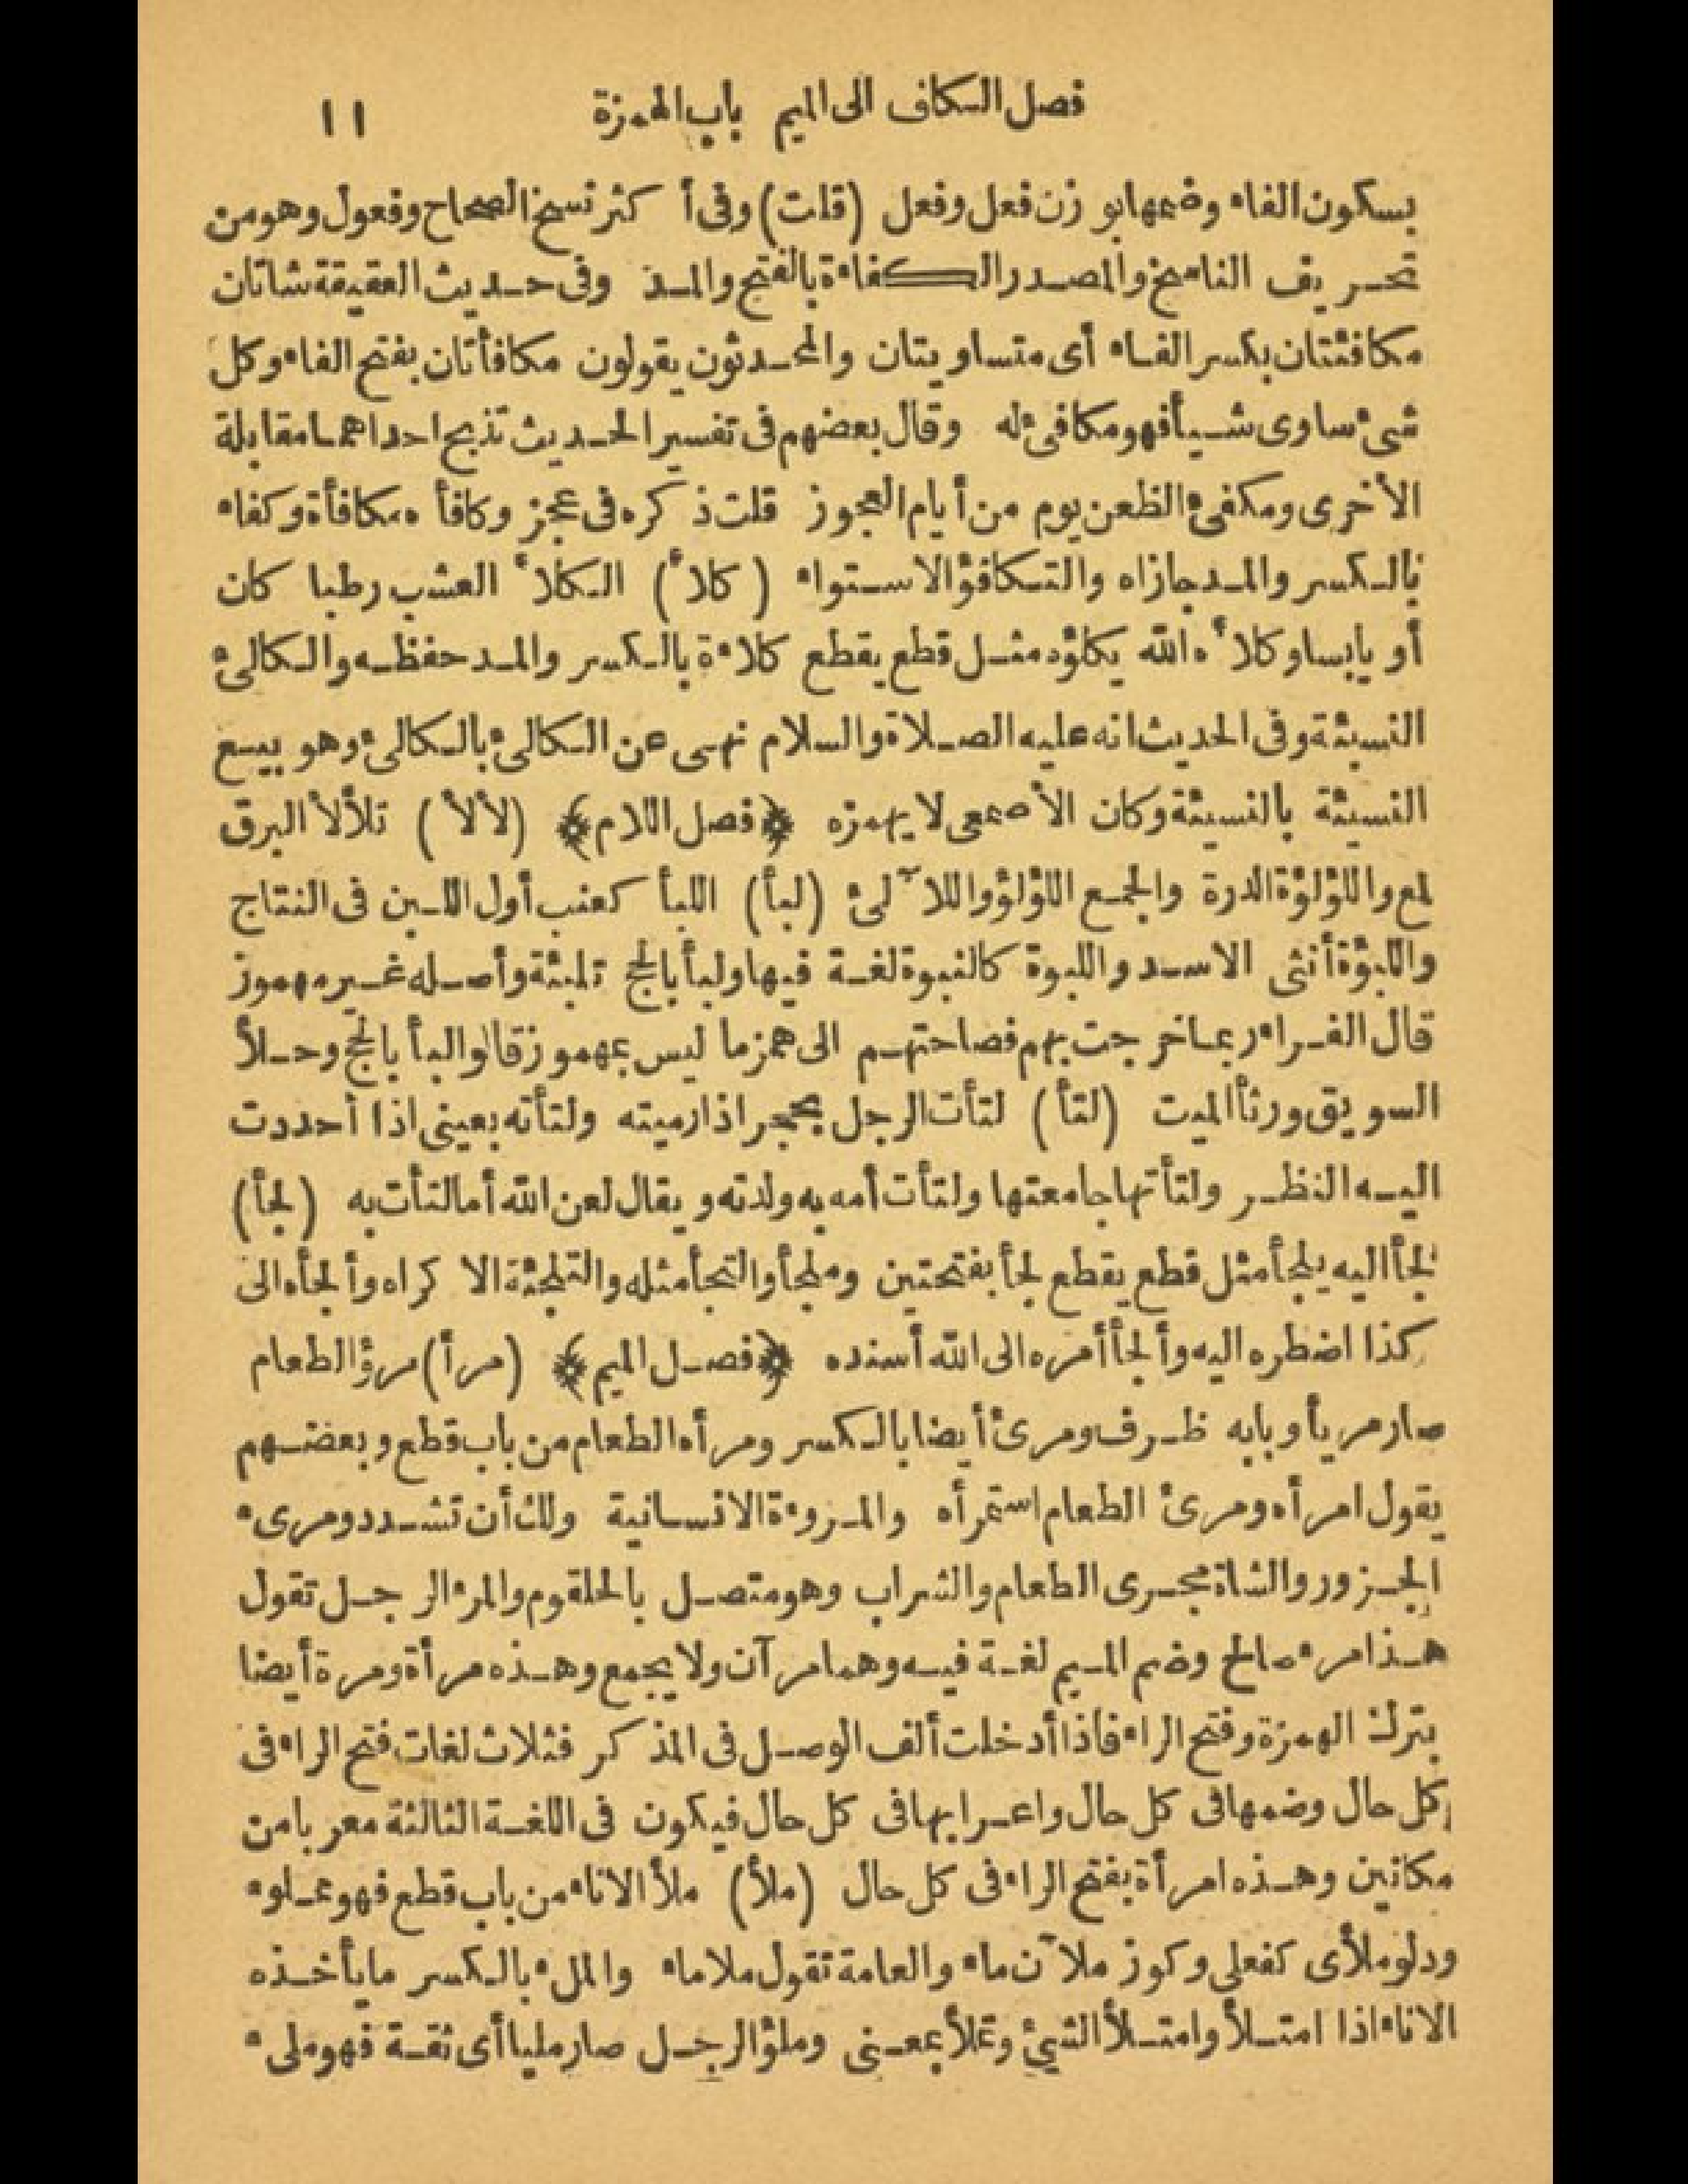 فصل الكاف الى الميم باب الهمزة ١١
بسكون الفاء وضمها بوزن فعل وفعل (قلت) وفى أكثر نسخ الصحاح وفعول وهو من
تحريف الناسخ والمصدر الكفاءة بالفتح والمد وفى حديث العقيقة شاتان
مكافئتان بكسر الفاء أى متساويتان والمحدثون يقولون مكافأتان بفتح الفاء وكل
شىء ساوى شيأ فهو مكافئ له وقال بعضهم فى تفسير الحديث تذبح احداهما مقابلة
الأخرى ومكفئ الظعن يوم من أيام العجوز قلت ذكره فى عجز وكافأه مكافأة وكفاء
بالكسر والمد جازاه والتكافؤ الاستواء (كلأ) الكلأ العشب رطبا كان
أو يابسا وكلأه الله يكلؤه مثل قطع يقطع كلاءة بالكسر والمد حفظه والكالئ
النسيئة وفى الحديث انه عليه الصلاة والسلام نهى عن الكالئ بالكالئ وهو بيع
النسيئة بالنسيئة وكان الأصمعى لا يهمزه ﴿فصل اللام﴾ (لألأ) تلألأ البرق
لمع واللؤلؤة الدرة والجمع اللؤلؤ واللآلئ (لبأ) اللبأ كعنب أول اللبن فى النتاج
واللبؤة أنثى الاسد واللبوة كالنبوة لغة فيها ولبأ بالحج تلبئة وأصله غير مهموز
قال الفراء ربما خرجت بهم فصاحتهم الى همز ما ليس بمهموز قالوا لبأ بالحج وحلأ
السويق ورثأ الميت (لتأ) لتأت الرجل بحجر اذا رميته ولتأته بعينى اذا أحددت
اليه النظر ولتأتها جامعتها ولتأت أمه به ولدته ويقال لعن الله أما لتأت به (لجأ)
لجأ اليه يلجأ مثل قطع يقطع لجأ بفتحتين وملجأ والتجأ مثله والتلجئة الاكراه وألجأه الى
كذا اضطره اليه وألجأ أمره الى الله أسنده ﴿فصل الميم﴾ (مرأ) مرؤ الطعام
صار مريأ وبابه ظرف ومرئ أيضا بالكسر ومرأه الطعام من باب قطع وبعضهم
يقول امرأه ومرئ الطعام استمرأه والمروءة الانسانية ولك أن تشدد ومرىء
الجزور والشاة مجرى الطعام والشراب وهو متصل بالحلقوم والمرء الرجل تقول
هذا مرء صالح وضم الميم لغة فيه وهما مرآن ولا يجمع وهذه مرأة ومرة أيضا
بترك الهمزة وفتح الراء فاذا أدخلت ألف الوصل فى المذكر فثلاث لغات فتح الراء فى
كل حال وضمها فى كل حال واعرابها فى كل حال فيكون فى اللغة الثالثة معربا من
مكانين وهذه امرأة بفتح الراء فى كل حال (ملأ) ملأ الاناء من باب قطع فهو مملوء
ودلو ملأى كفعلى وكوز ملآن ماء والعامة تقول ملا ماء والملء بالكسر ما يأخذه
الاناء اذا امتلأ وامتلأ الشئ وتملأ بمعنى وملؤ الرجل صار مليا أى ثقة فهو ملىء